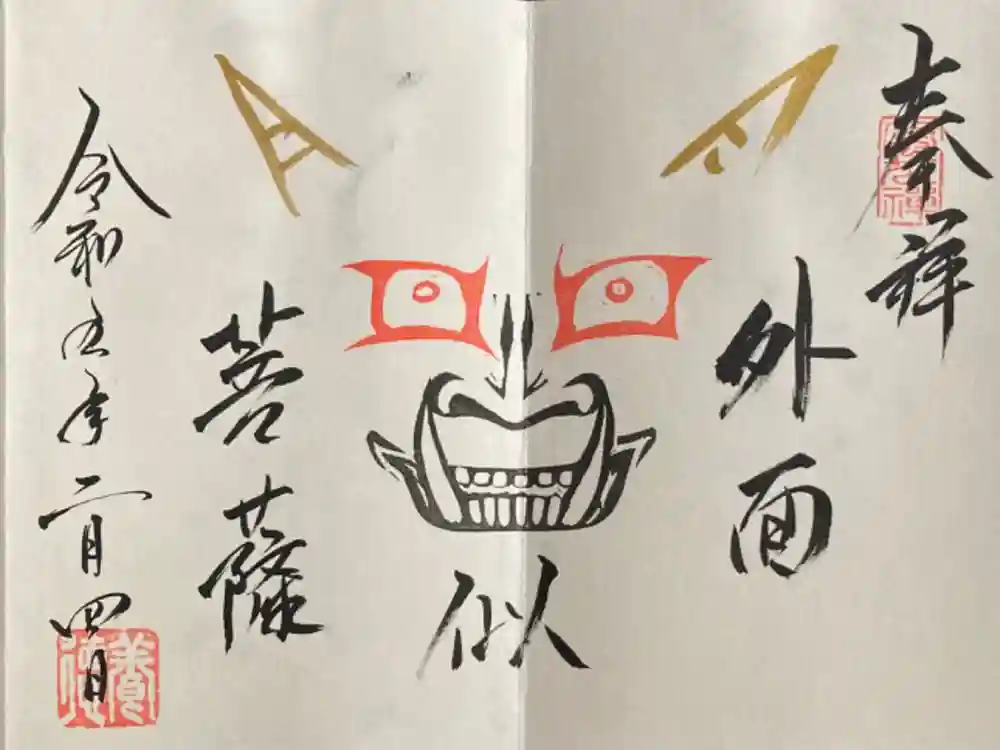 奉祥
外面
似
菩薩
令和五年二月四日
養徳